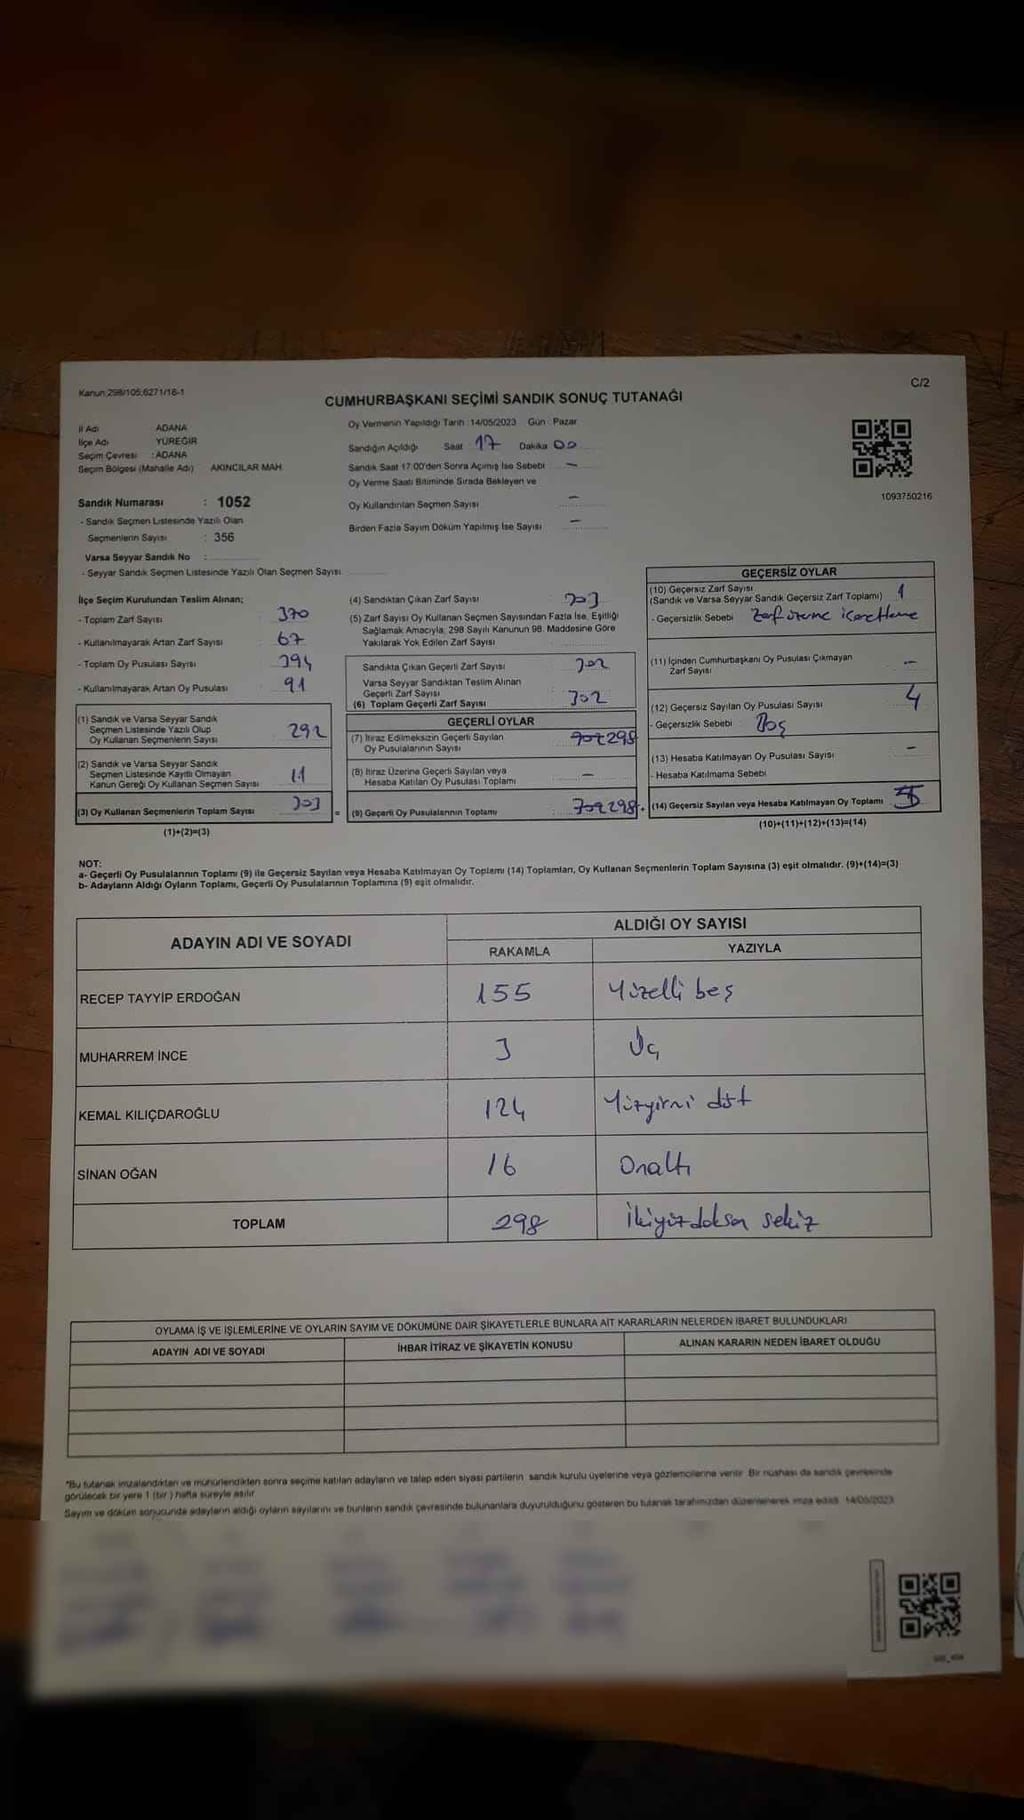 Kanun:298/105;6271/16-1
C/2
CUMHURBAŞKANI SEÇİMİ SANDIK SONUÇ TUTANAĞI
İl Adı ADANA
İlçe Adı YÜREĞİR
Seçim Çevresi :ADANA
Seçim Bölgesi (Mahalle Adı) AKINCILAR MAH.
Sandık Numarası : 1052
- Sandık Seçmen Listesinde Yazılı Olan
Seçmenlerin Sayısı : 356
Varsa Seyyar Sandık No :
- Seyyar Sandık Seçmen Listesinde Yazılı Olan Seçmen Sayısı
Oy Vermenin Yapıldığı Tarih :14/05/2023 Gün : Pazar
Sandığın Açıldığı Saat 17 Dakika 00
Sandık Saat 17.00'den Sonra Açılmış İse Sebebi —
Oy Verme Saati Bitiminde Sırada Bekleyen ve
Oy Kullandırılan Seçmen Sayısı —
Birden Fazla Sayım Döküm Yapılmış İse Sayısı —
1093750216
İlçe Seçim Kurulundan Teslim Alınan;
- Toplam Zarf Sayısı 370
- Kullanılmayarak Artan Zarf Sayısı 67
- Toplam Oy Pusulası Sayısı 394
- Kullanılmayarak Artan Oy Pusulası 91
(1) Sandık ve Varsa Seyyar Sandık
Seçmen Listesinde Yazılı Olup
Oy Kullanan Seçmenlerin Sayısı 292
(2) Sandık ve Varsa Seyyar Sandık
Seçmen Listesinde Kayıtlı Olmayan
Kanun Gereği Oy Kullanan Seçmen Sayısı 11
(3) Oy Kullanan Seçmenlerin Toplam Sayısı 303
(1)+(2)=(3)
(4) Sandıktan Çıkan Zarf Sayısı 303
(5) Zarf Sayısı Oy Kullanan Seçmen Sayısından Fazla İse, Eşitliği
Sağlamak Amacıyla; 298 Sayılı Kanunun 98. Maddesine Göre
Yakılarak Yok Edilen Zarf Sayısı
Sandıkta Çıkan Geçerli Zarf Sayısı 302
Varsa Seyyar Sandıktan Teslim Alınan
Geçerli Zarf Sayısı
(6) Toplam Geçerli Zarf Sayısı 302
GEÇERLİ OYLAR
(7) İtiraz Edilmeksizin Geçerli Sayılan
Oy Pusulalarının Sayısı 298
(8) İtiraz Üzerine Geçerli Sayılan veya
Hesaba Katılan Oy Pusulası Toplamı —
= (9) Geçerli Oy Pusulalarının Toplamı 298 +
GEÇERSİZ OYLAR
(10) Geçersiz Zarf Sayısı
(Sandık ve Varsa Seyyar Sandık Geçersiz Zarf Toplamı) 1
- Geçersizlik Sebebi Zarf üzerine işaretleme
(11) İçinden Cumhurbaşkanı Oy Pusulası Çıkmayan
Zarf Sayısı —
(12) Geçersiz Sayılan Oy Pusulası Sayısı 4
- Geçersizlik Sebebi Boş
(13) Hesaba Katılmayan Oy Pusulası Sayısı —
- Hesaba Katılmama Sebebi
(14) Geçersiz Sayılan veya Hesaba Katılmayan Oy Toplamı 5
(10)+(11)+(12)+(13)=(14)
NOT:
a- Geçerli Oy Pusulalarının Toplamı (9) ile Geçersiz Sayılan veya Hesaba Katılmayan Oy Toplamı (14) Toplamları, Oy Kullanan Seçmenlerin Toplam Sayısına (3) eşit olmalıdır. (9)+(14)=(3)
b- Adayların Aldığı Oyların Toplamı, Geçerli Oy Pusulalarının Toplamına (9) eşit olmalıdır.
ADAYIN ADI VE SOYADI
ALDIĞI OY SAYISI
RAKAMLA YAZIYLA
RECEP TAYYİP ERDOĞAN 155 Yüzelli beş
MUHARREM İNCE 3 Üç
KEMAL KILIÇDAROĞLU 124 Yüzyirmi dört
SİNAN OĞAN 16 Onaltı
TOPLAM 298 İkiyüz doksan sekiz
OYLAMA İŞ VE İŞLEMLERİNE VE OYLARIN SAYIM VE DÖKÜMÜNE DAİR ŞİKAYETLERLE BUNLARA AİT KARARLARIN NELERDEN İBARET BULUNDUKLARI
ADAYIN ADI VE SOYADI
İHBAR İTİRAZ VE ŞİKAYETİN KONUSU
ALINAN KARARIN NEDEN İBARET OLDUĞU
*Bu tutanak imzalandıktan ve mühürlendikten sonra seçime katılan adayların ve talep eden siyasi partilerin sandık kurulu üyelerine veya gözlemcilerine verilir. Bir nüshası da sandık çevresinde
görülecek bir yere 1 (bir ) hafta süreyle asılır.
Sayım ve döküm sonucunda adayların aldığı oyların sayılarını ve bunların sandık çevresinde bulunanlara duyurulduğunu gösteren bu tutanak tarafımızdan düzenlenerek imza edildi. 14/05/2023